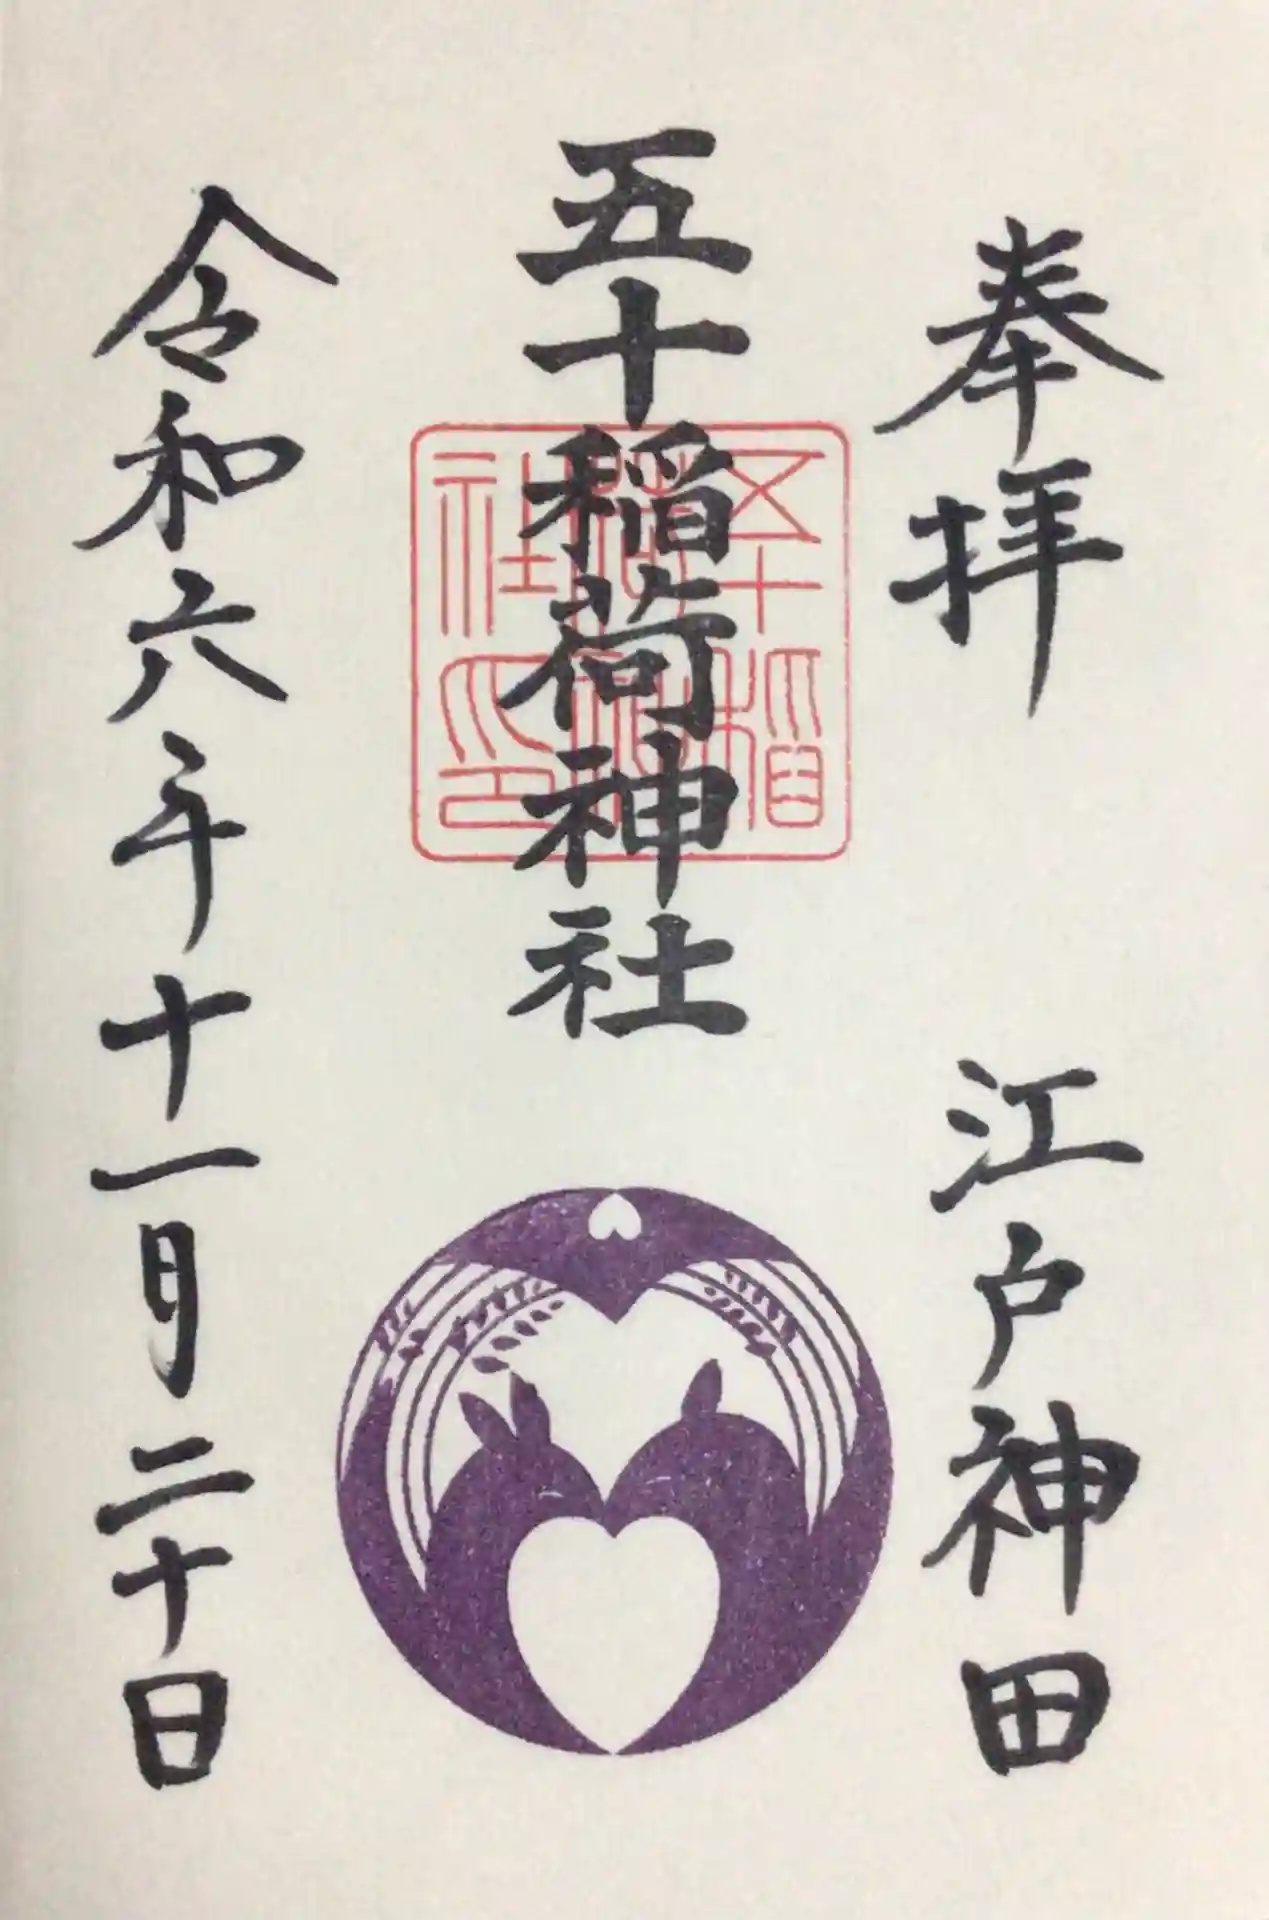 奉拝　江戸神田
五十稲荷神社
五十稲荷社印
令和六年十一月二十日